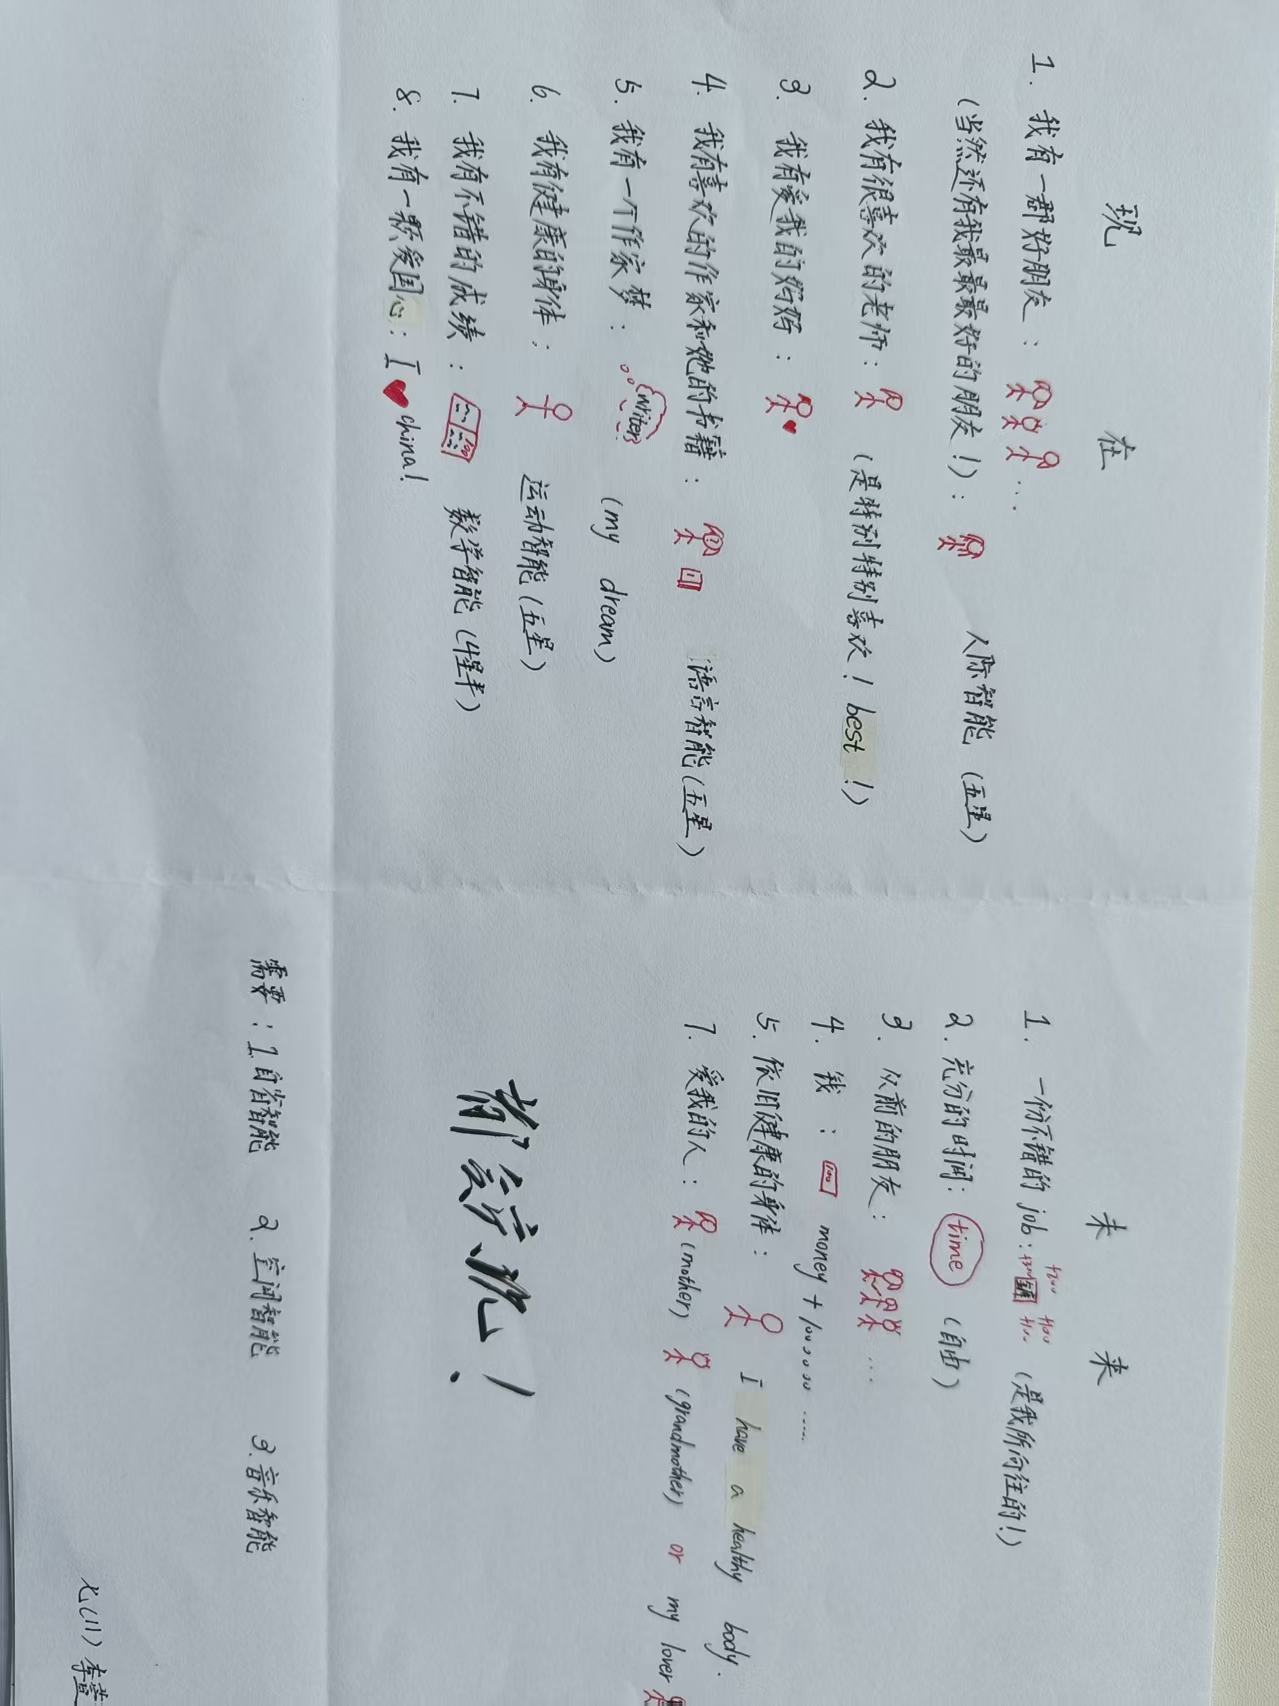 现 在
1. 我有一群好朋友：...
(当然还有我最最最好的朋友！)： 人际智能 (五星)
2. 我有很喜欢的老师： (是特别特别喜欢！best！)
3. 我有爱我的妈妈：
4. 我有喜欢的作家和她的书籍： 语言智能(五星)
5. 我有一个作家梦： writers (my dream)
6. 我有健康的身体： 运动智能(五星)
7. 我有不错的成绩： 数学智能(4星半)
8. 我有一颗爱国心：I ❤ china!
未 来
1. 一份不错的job： (是我所向往的！)
2. 充分的时间：time (自由)
3. 以前的朋友：...
4. 钱： money +
5. 依旧健康的身体： I have a healthy body.
7. 爱我的人： (mother) (grandmother) or my lover
都会实现！
需要：1.自省智能 2.空间智能 3.音乐智能
七(11) 李